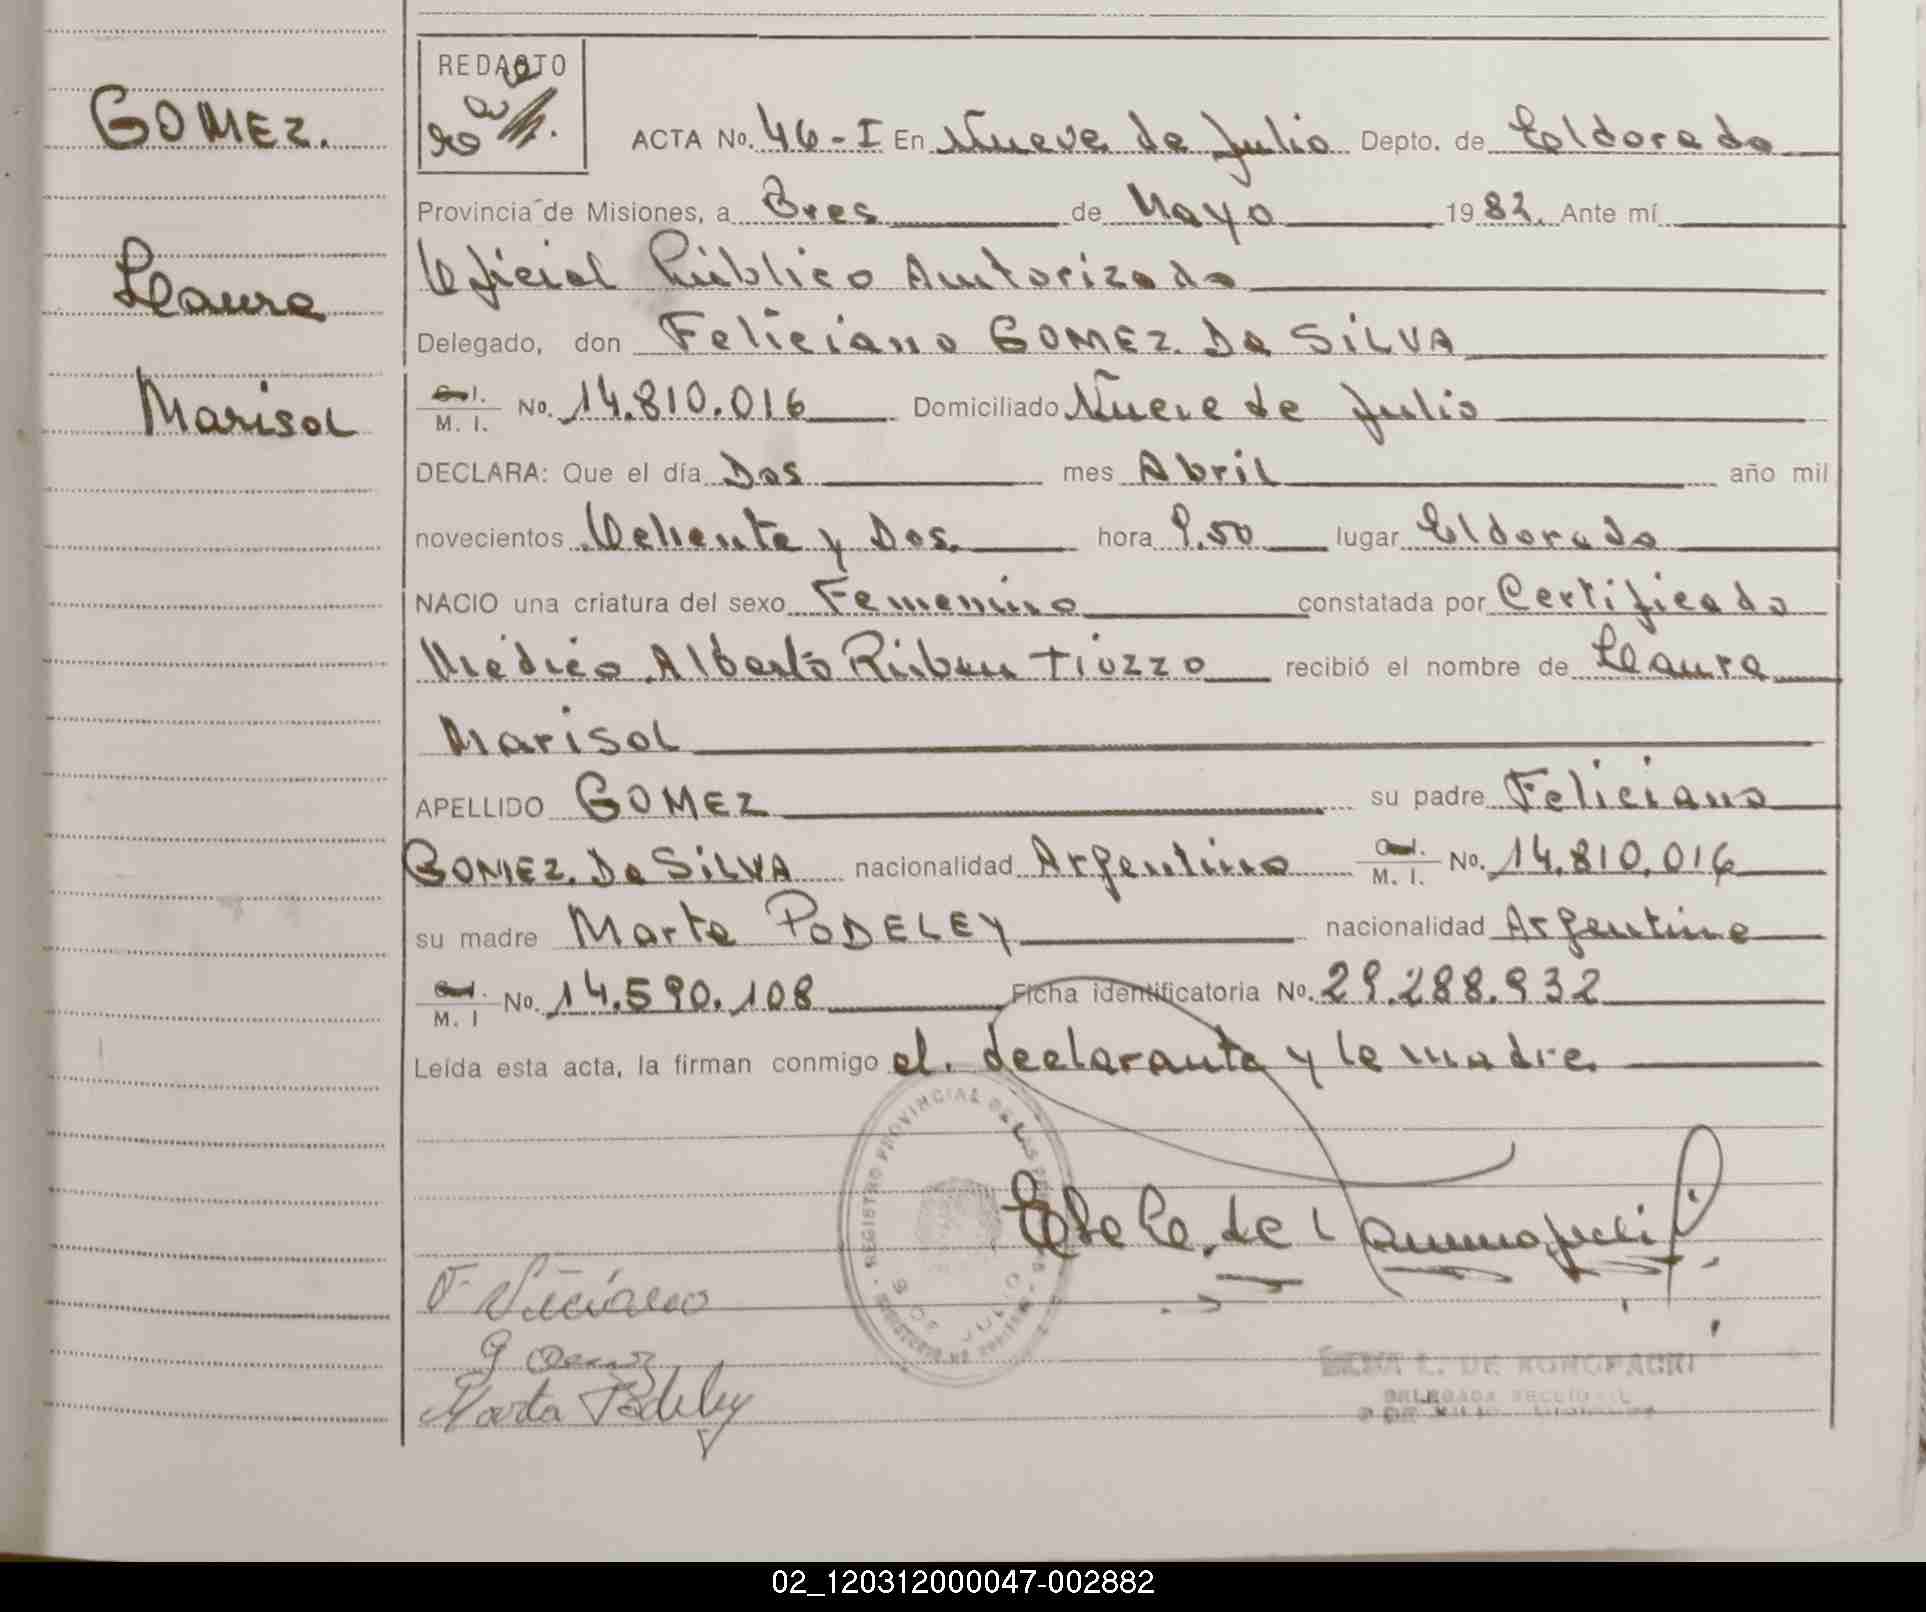 GOMEZ.
Laura
Marisol
REDACTO
ACTA No. 46-I En Nueve de Julio Depto. de Eldorado
Provincia de Misiones, a Tres de Mayo 1982. Ante mí
Oficial Público Autorizado
Delegado, don Feliciano GOMEZ. Da SILVA
M. I. No. 14.810.016 Domiciliado Nueve de Julio
DECLARA: Que el día Dos mes Abril año mil
novecientos Ochenta y Dos. hora 9.50 lugar Eldorado
NACIO una criatura del sexo Femenino constatada por Certificado
Médico Alberto Rúben Tiozzo recibió el nombre de Laura
Marisol
APELLIDO GOMEZ su padre Feliciano
GOMEZ. Da SILVA nacionalidad Argentino M. I. No. 14.810.016
su madre Marta PODELEY nacionalidad Argentina
M. I No. 14.590.108 Ficha identificatoria No. 29.288.932
Leída esta acta, la firman conmigo el declarante y la madre
REGISTRO PROVINCIAL DE LAS
9 DE JULIO
Marta Podeley
02_120312000047-002882